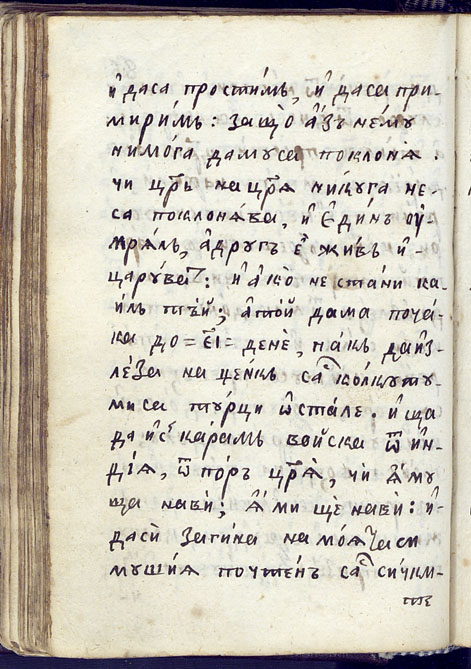 и҆ даса прости́мъ, и҆ даса при-
мири́мъ: защо̀ а҆́зъ не́му
нимо́га дамуса поклонѧ̀.
чи цр҃ь на цр҃ѧ никуга не-
са поклонѧ́ва, и҆ є҆ди́нъ оу҆-
мрѧ́лъ, а҆другъ є҆ жи́въ и҆-
царува̑: и҆ а҆ко̀ не ста́ни ка-
и́лъ тѣ́й; а҆то́й дама поча́-
ка до = є҃і = денѐ, па́къ даи҆з-
ле́за на це́нкъ са ко́лкуту-
миса ту́рци ѡ҆ста́ле. и҆ ща
да и҆с карамъ во́йска ѿ и҆н-
ді́ѧ, ѿ по́ръ цр҃ѧ̀, чѝ ѧ҆́му
ща навѝ; ѧ҆́ ми щѐ навѝ: и҆-
дасѝ заги́на на моѧ̀ часи
муши́ѧ почте́нъ са си́чкм-
те